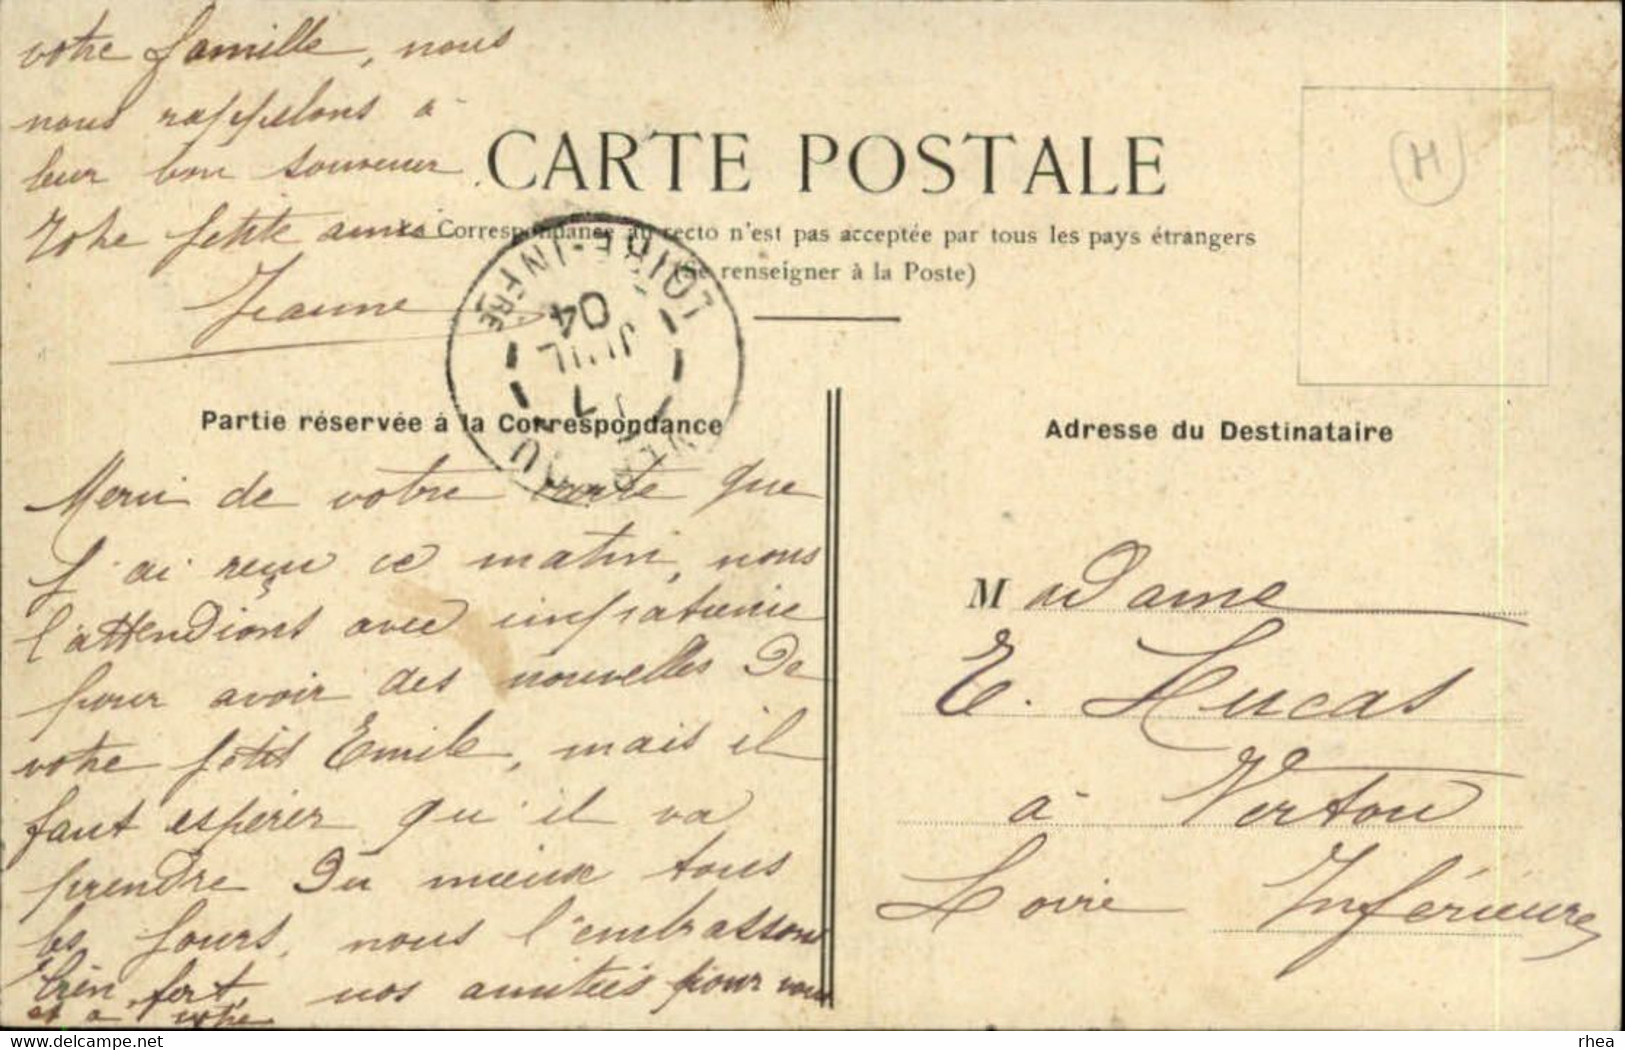 votre famille, nous
nous rappelons à
leur bon souvenir
Votre petite amie
Jeanne
CARTE POSTALE
La Correspondance au recto n'est pas acceptée par tous les pays étrangers
(Se renseigner à la Poste)
LOIRE-INFRE
04
JUIL
7
VERTOU
M
Partie réservée à la Correspondance
Merci de votre carte que
j'ai reçu ce matin, nous
l'attendions avec impatience
pour avoir des nouvelles de
votre petit Emile, mais il
faut espérer qu'il va
prendre du mieux tous
les jours, nous l'embrassons
bien fort, nos amitiés pour vous
et à votre
Adresse du Destinataire
Madame
E. Lucas
à Vertou
Loire Inférieure
rhea